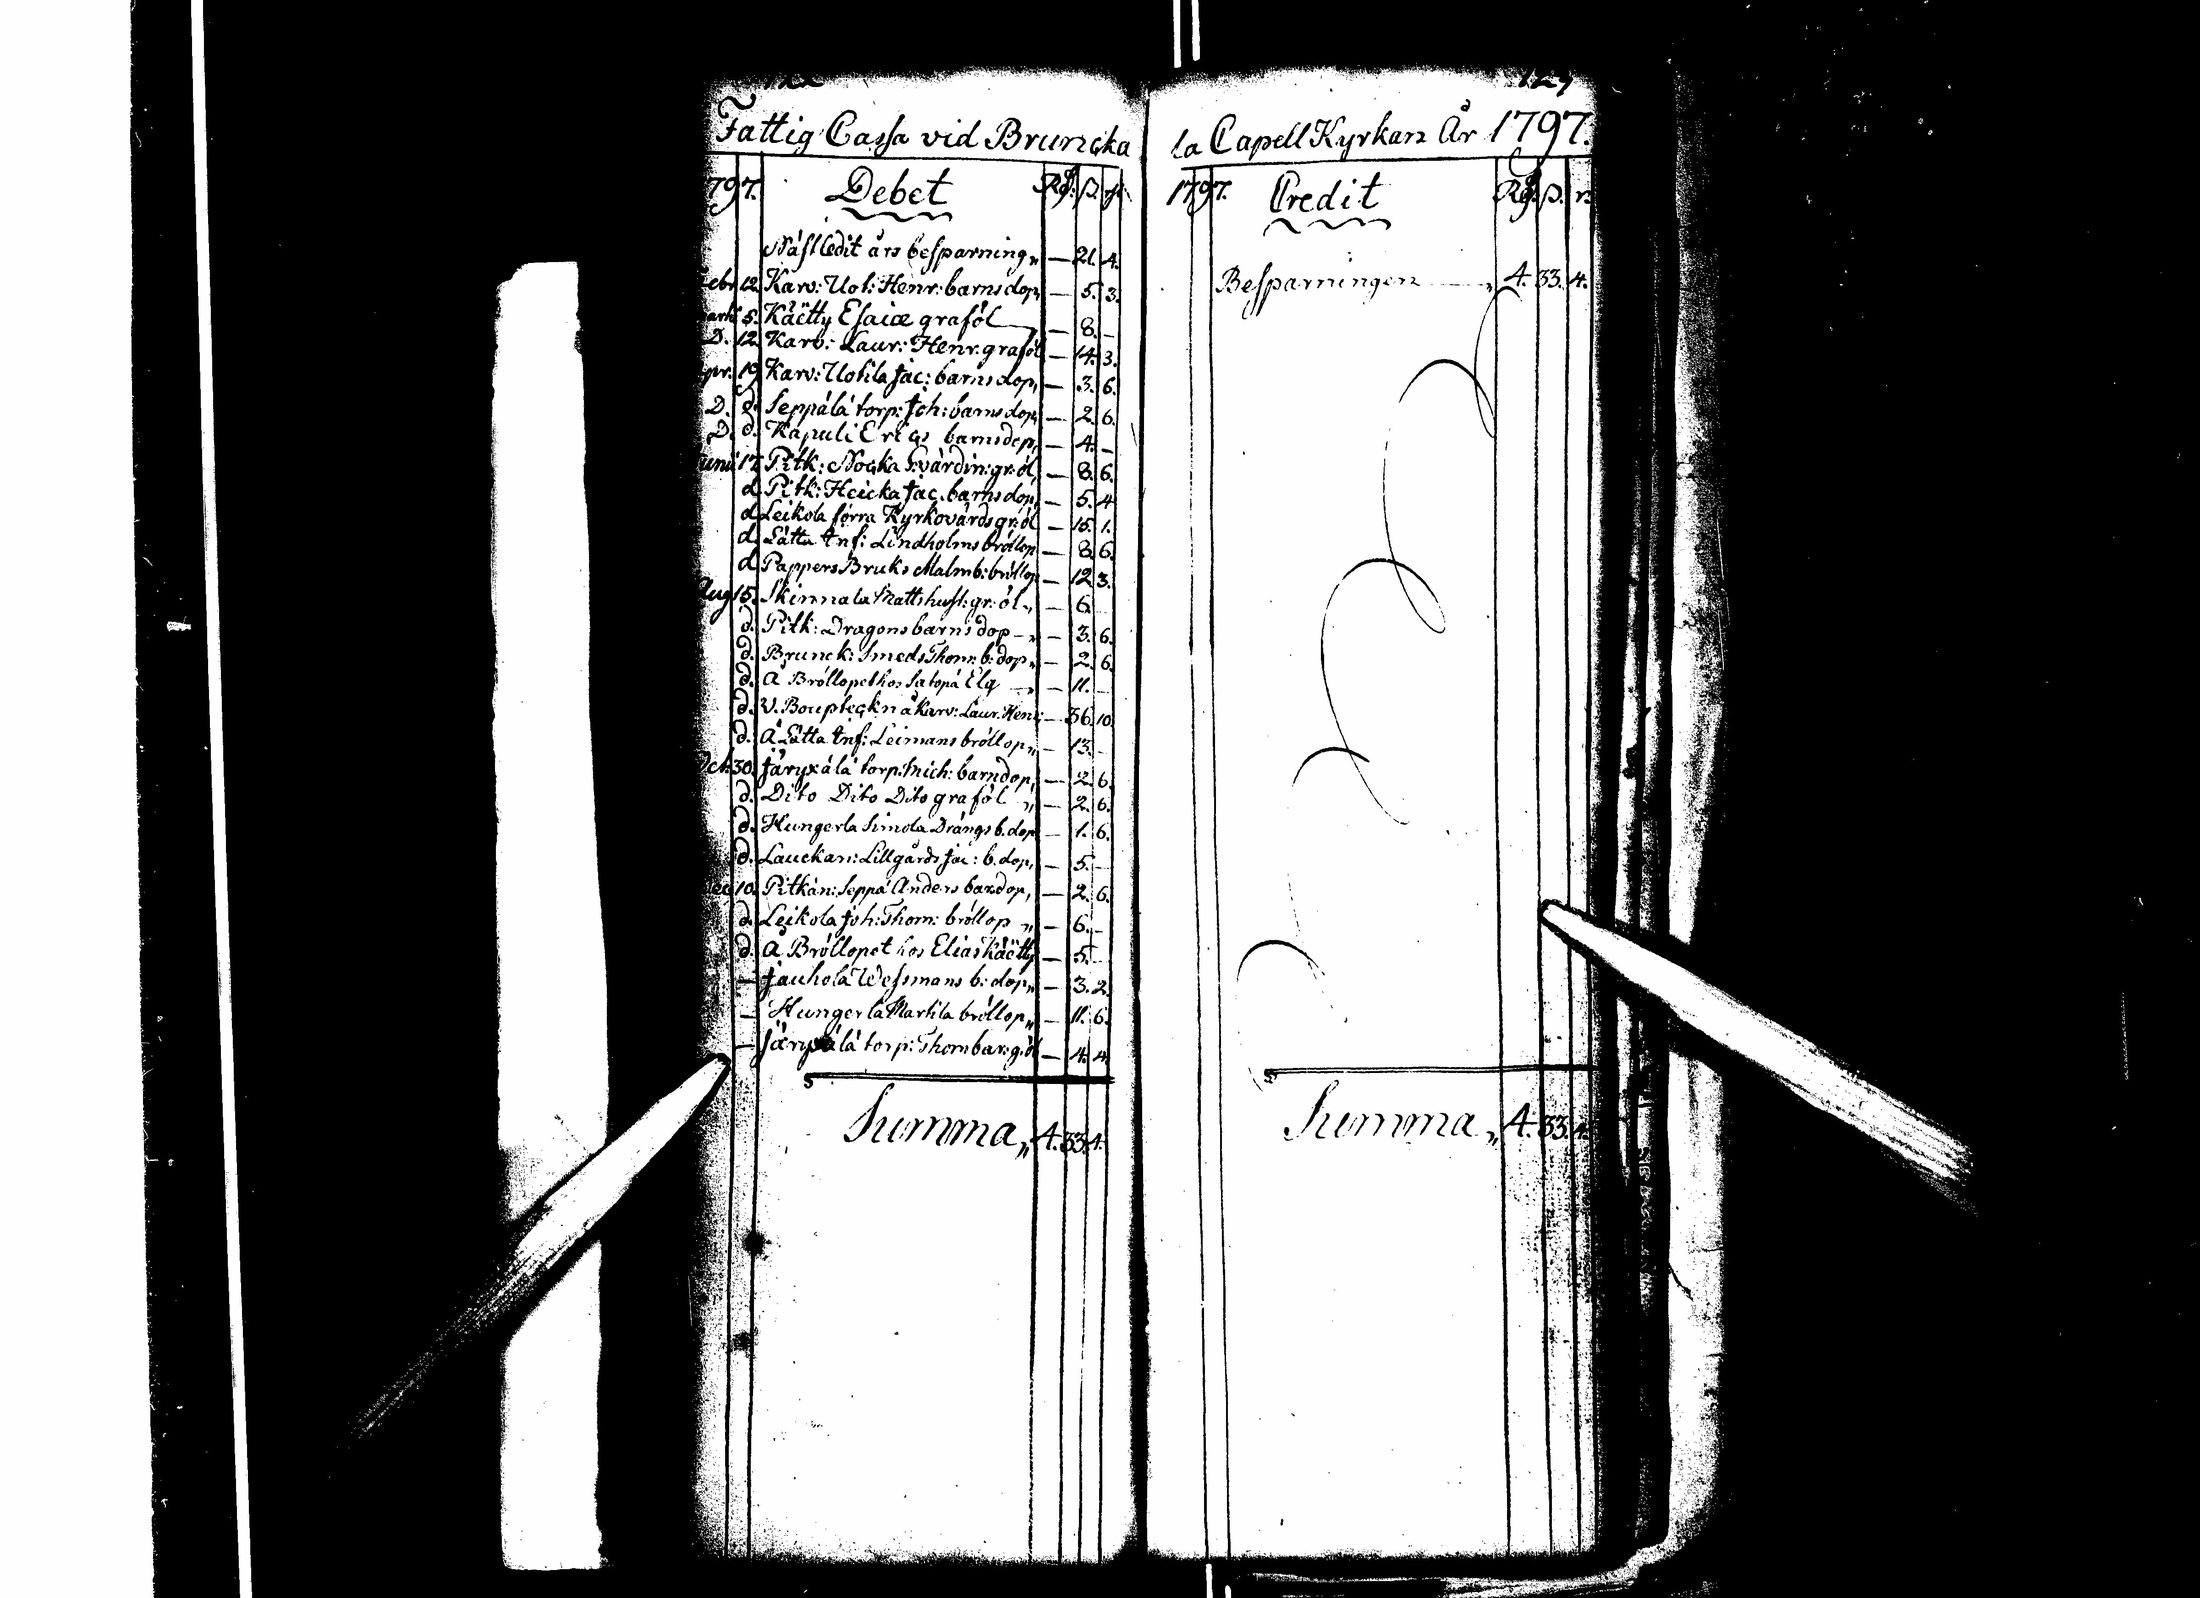 Fattig Cassa vid Bruncka
797. Debet Rd. ß. r.
Näsl ledit års besparning „ — 21. 4.
Febr. 12. Karv: Uot: Henr: barnsdop, — 5. 3.
Marti 5. Käetty Esaiæ graföl — 8. —
D. 12. Karv: Laur: Henr. graföl — 14. 3.
Apr. 19. Karv: Uotila Jac: barnsdop, — 3. 6.
D. d. Seppälä torp: Joh: barnsdop, — 2. 6.
D. d. Kapuli Erics barnsdop, — 4. —
Junii 17. Pitk: Nocka S.värdin: gr: öl, — 8. 6.
d. Pitk: Heicka Jac. barnsdop, — 5. 4
d. Leikola förra Kyrkovärds gr: öl — 15. 1.
d. Lätta Inf: Lindholms bröllop — 8. 6.
d. Pappers Bruks Malmb: bröllop — 12. 3.
Aug 15. Skinnala Matts hust: gr: öl „ — 6.
d. Pitk: Dragons barnsdop „ — 3. 6.
d. Brunck: Smeds Thom: b: dop „ — 2. 6.
d. Å Bröllopet hos Satopä Elg „ — 11. —
d. V. Bouptekn å Karv: Laur. Henr: — 36. 10.
d. Å Lätta Inf: Leimans bröllop „ — 13. —
Oct. 30. Järyxälä torp. Mich: barndop, — 2. 6.
d. Dito Dito Dito graföl „ — 2. 6.
d. Hungerla Simola Drängs b. dop — 1. 6.
d. Lauckan: Lillgårds Jac: b. dop, — 5. —
Dec 10. Pitkän: Seppä Anders bardop, — 2. 6.
d. Leikola Joh: Thom: bröllop „ — 6. —
d. Å Bröllopet hos Elias Käetty — 5. —
— Jauhola Wessmans b: dop „ — 3. 2.
— Hungerla Martila bröllop „ — 11. 6.
— Järyxälä torp: Thom bar: g: öl — 4. 4
Summa „ 4. 33. 4.
la Capell Kyrkan År 1797.
1797. Credit Rd. ß. r.
Besparningen „ 4. 33. 4.
Summa „ 4. 33. 4.